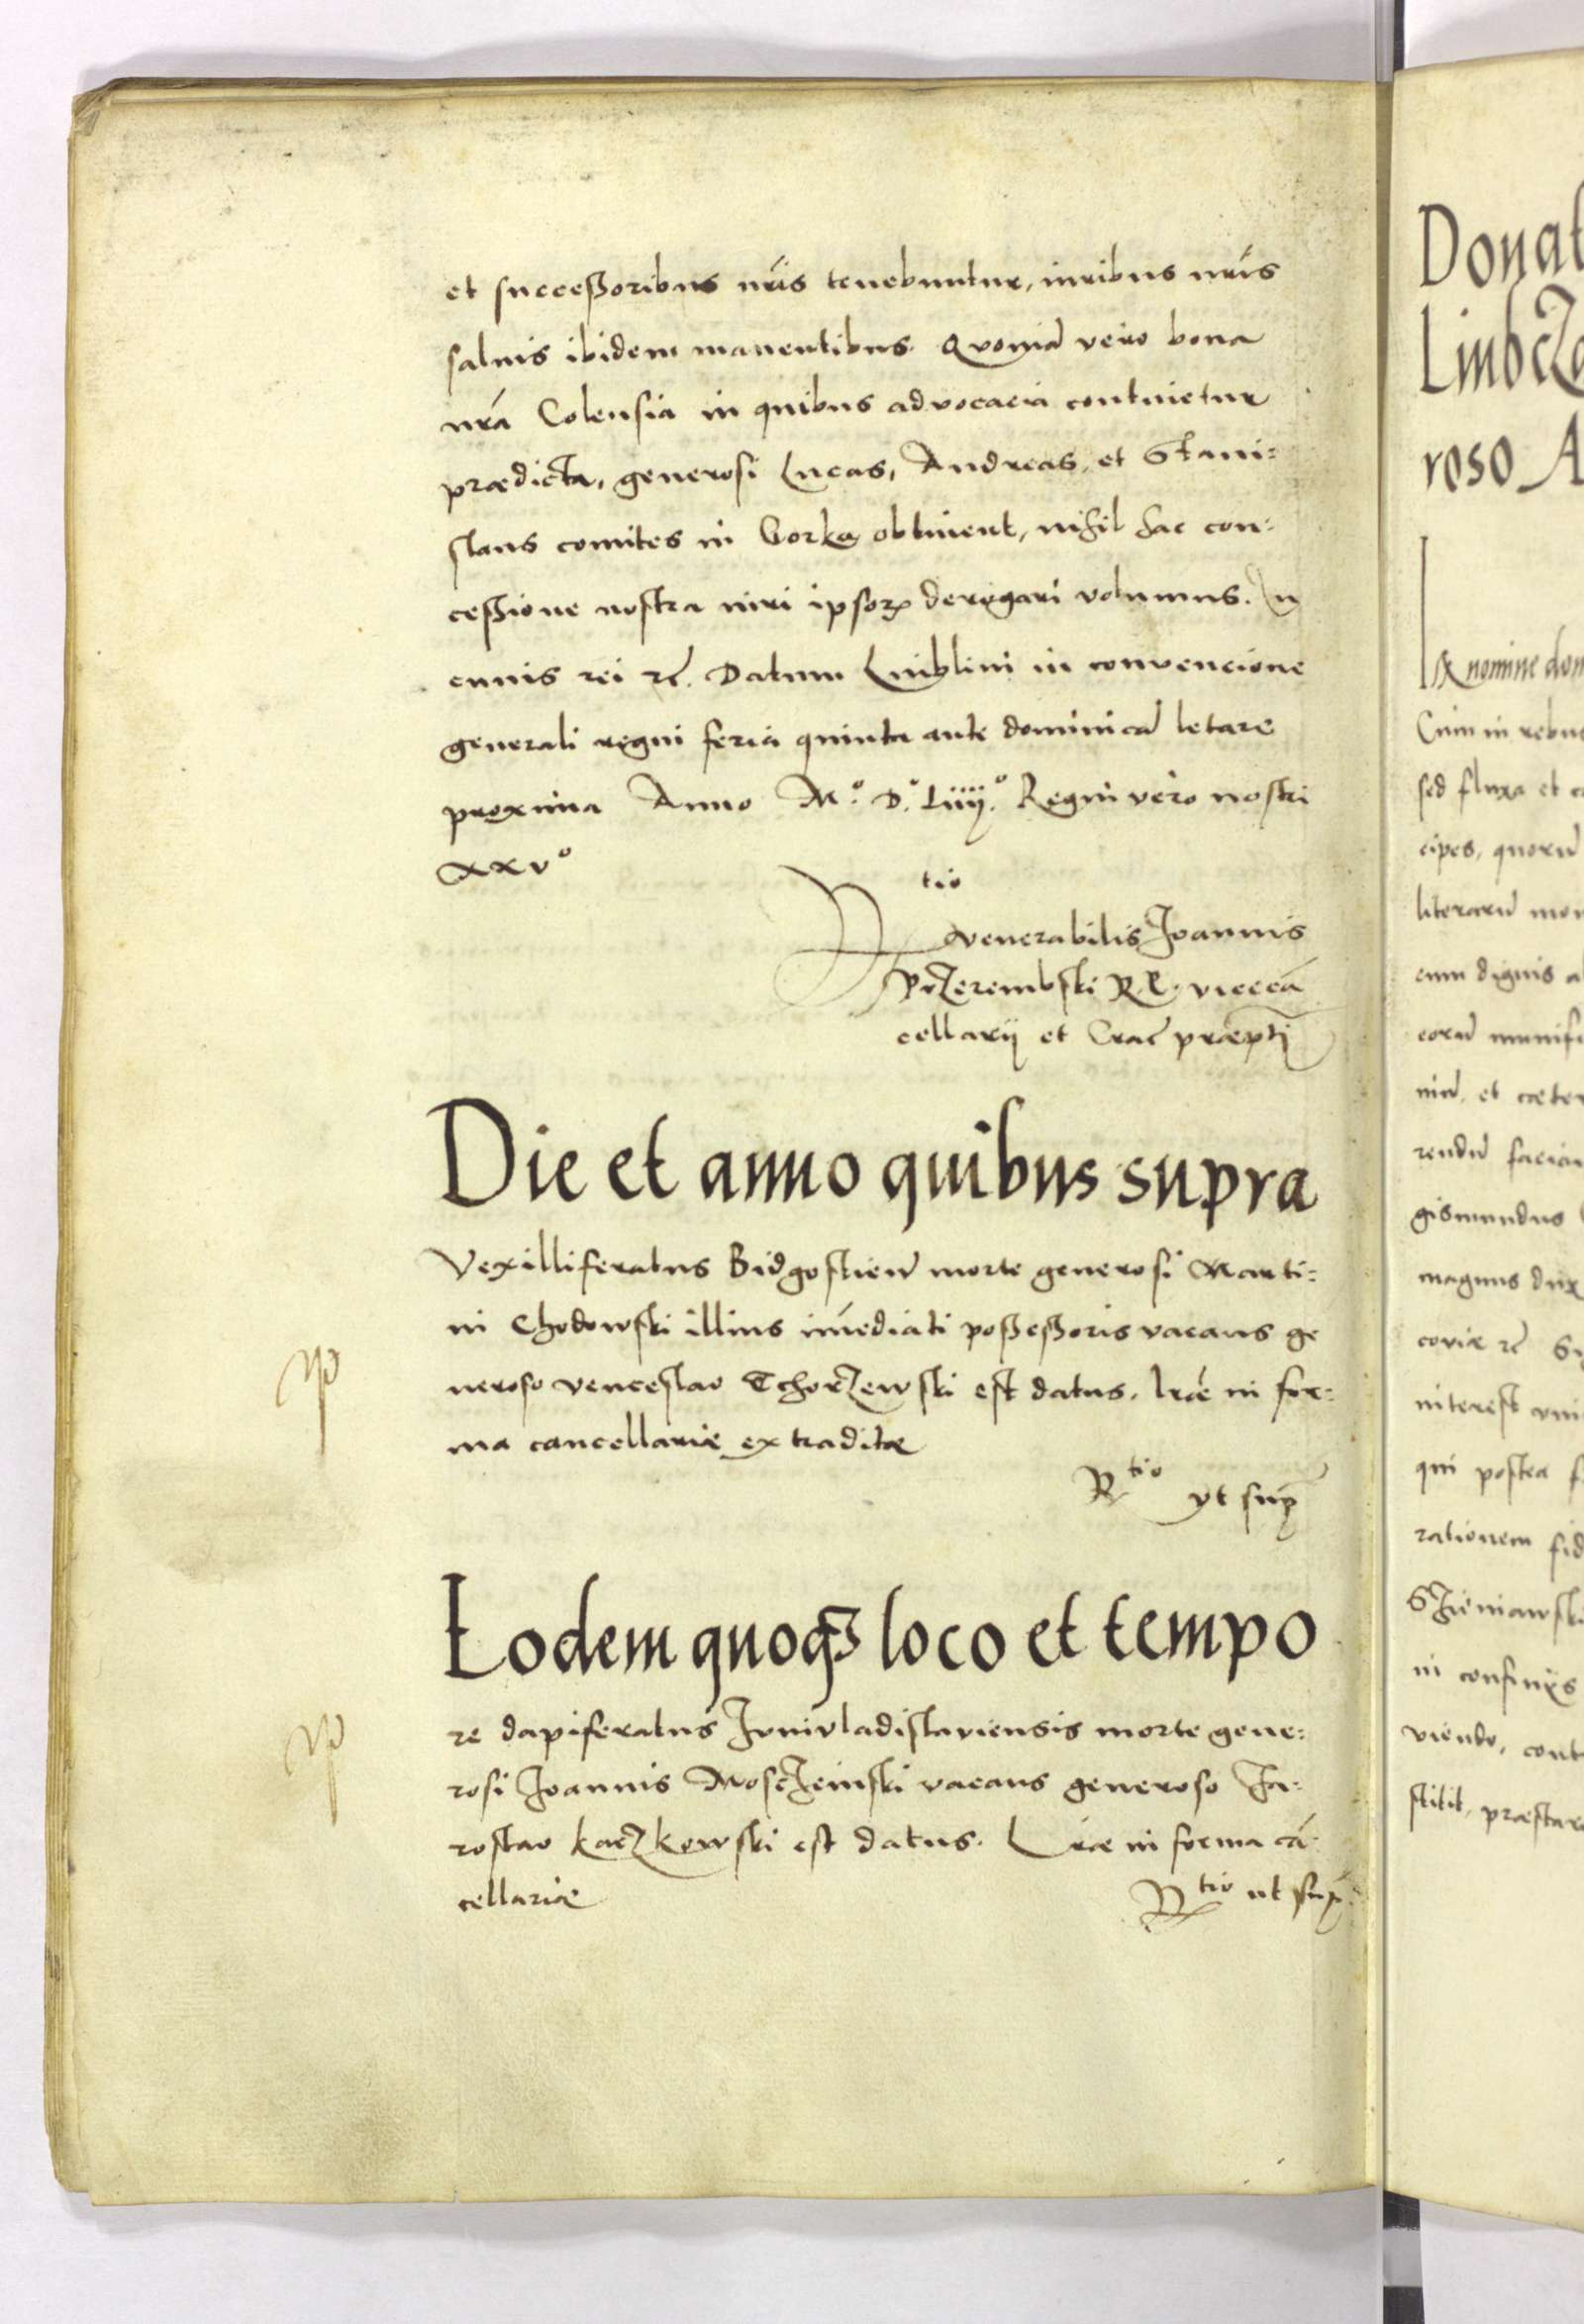 et successoribus nris tenebuntur, iuribus nris
salvis ibidem manentibus. Quoniā vero bona
nrā Colensia in quibus advocacia continetur
prædicta, generosi Lucas, Andreas, et Stani:
slaus comites in Gorka obtinent, nihil hac con:
cessione nostra iuri ipsorꝝ derogari volumus. In
cuius rei rc̄. Datum Lublini in convencione
generali regni feria quinta ante dominicā letare
proxima Anno M.º D.º Liiij.º Regni vero nostri
xxvº
Rtio
venerabilis Joannis
Przerembski R. P. viceca͂
cellarij et Crac̄ præpti
Die et anno quibus supra
Vexilliferatus Bidgostien̄ morte generosi Marti:
ni Chodowski illius im̄ediati possessoris vacans ge
neroso Venceslao Tchorzewski est datus. lræ in for:
ma cancellariæ extraditæ
Rtio vt sup
Eodem quoqꝫ loco et tempo
re dapiferatus Junivladislaviensis morte gene:
rosi Joannis Mosczeinski vacans generoso Ja:
roslao Kaczkowski est datus. Lræ in forma cā
cellariæ
Rtio ut sup
Donat
Limbcza
roso A
In nomine dom
Cum in rebus
sed fluxa et c
cipes, quorū
literarū mon
cum dignis a
eorū munifi
niū, et cæter
rendū facia
gismundus
magnus dux
coviæ rc̄
interest
qui postea f
rationem fid
Szieniawski
in confinijs
viendo, cont
stitit, præstar